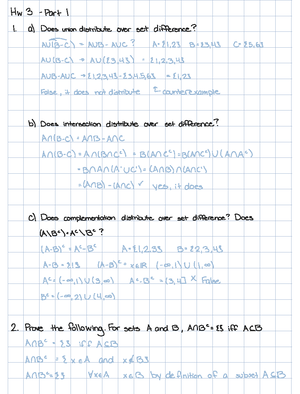 Hw 3 - Part 1
1. a) Does union distribute over set difference?
A∪(B-C) = A∪B - A∪C ? A = {1,2} B = {3,4} C = {5,6}
A∪(B-C) = A∪({3,4}) = {1,2,3,4}
A∪B - A∪C = {1,2,3,4} - {3,4,5,6} = {1,2}
False, it does not distribute ↑ counterexample
b) Does intersection distribute over set difference?
A∩(B-C) = A∩B - A∩C
A∩(B-C) = A∩(B∩Cᶜ) = B(A∩Cᶜ) = B(A∩Cᶜ)∪(A∩Aᶜ)
= B∩A∩(Aᶜ∪Cᶜ) = (A∩B)∩(A∩Cᶜ)
= (A∩B) - (A∩C) ✓ yes, it does
c) Does complementation distribute over set difference? Does
(A\Bᶜ) = Aᶜ\Bᶜ ?
(A-B)ᶜ = Aᶜ-Bᶜ A = {1,2,3} B = {2,3,4}
A-B = {1} (A-B)ᶜ = x∈ℝ (-∞,1)∪(1,∞)
Aᶜ = (-∞,1)∪(3,∞) Aᶜ-Bᶜ = (3,4] × False
Bᶜ = (-∞,2)∪(4,∞)
2. Prove the following. For sets A and B, A∩Bᶜ = {} iff A⊆B
A∩Bᶜ = {} iff A⊆B
A∩Bᶜ = {x∈A and x∉B}
A∩Bᶜ = {} ∀x∈A x∈B by definition of a subset A⊆B